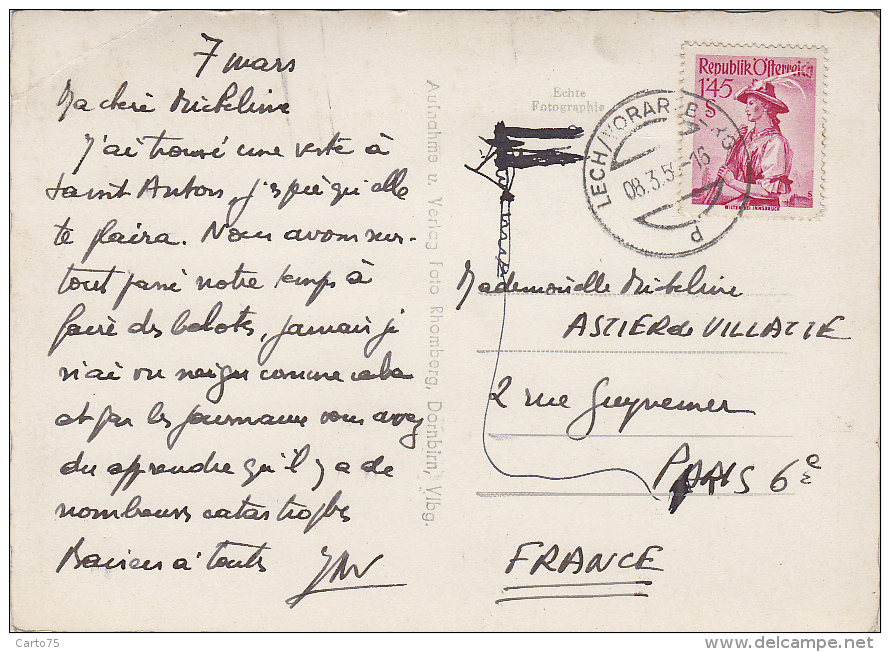 7 mars
Ma chère Micheline
J'ai trouvé une veste à
Saint Anton, j'espère qu'elle
te plaira. Nous avons sur-
tout passé notre temps à
faire des belotes, jamais je
n'ai vu neiger comme cela
et par les journaux vous avez
du apprendre qu'il y a de
nombreuses catastrophes
Baisers à toutes
Aufnahme u. Verlag Foto Rhomberg, Dornbirn, Vlbg.
Echte
Fotographie
Republik Österreich
1'45
S
WILTEN BEI INNSBRUCK
LECH/VORARLBERG
08.3.5 -16
d
Mademoiselle Micheline
ASTIER de VILLATTE
2 rue Guynemer
PARIS 6e
FRANCE
Carto75
www.delcampe.net